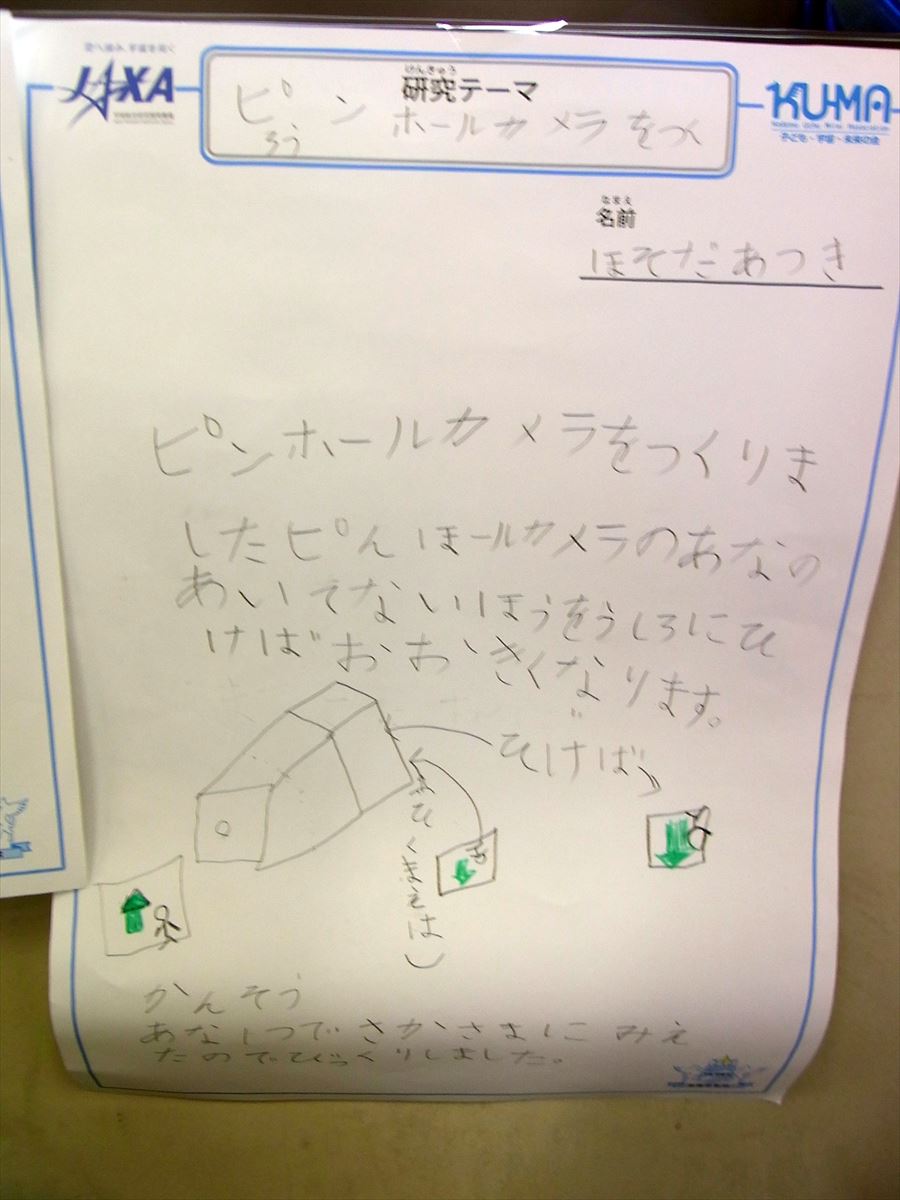 JAXA
けんきゅう
研究テーマ
ピンホールカメラをつく
ろう
KUMA
子ども・宇宙・未来の会
なまえ
名前
ほそだあつき
ピンホールカメラをつくりま
したピんほールカメラのあなの
あいてないほうをうしろにひ
けばおおきくなります。
ひけば
(ひくまえは)
かんそう
あな1つでさかさまにみえ
たのでびっくりしました。